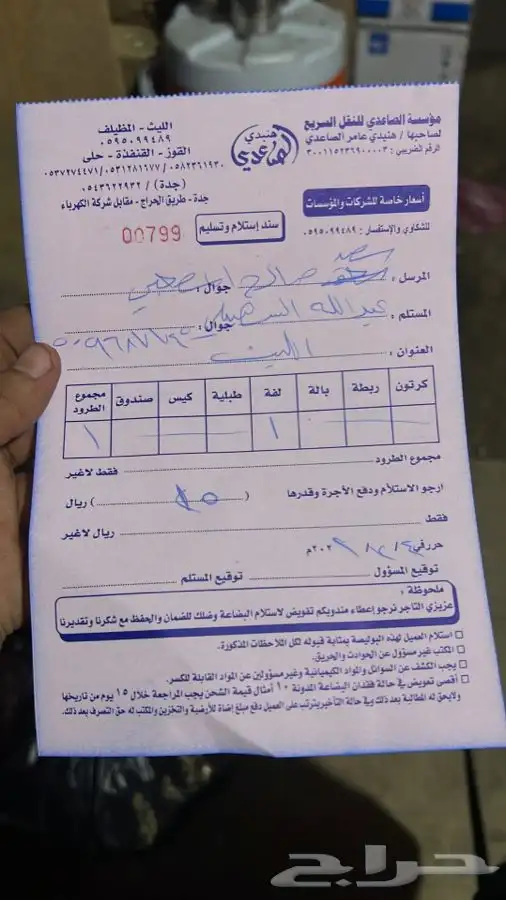 مؤسسة الصاعدي للنقل السريع
لصاحبها / هنيدي عامر الصاعدي
الرقم الضريبي : ٣٠٠١١٥٢٣٦٩٠٠٠٠٣
هنيدي
الصاعدي
الليث - المظيلف
٠٥٩٥٠٩٩٤٨٩
القوز - القنفذة - حلى
٠٥٣٧٢٧٤٤٧١/٠٥٣١٢٨١٦٧٧/٠٥٨٢٣٦١٩٣٠
(جدة) / ٠٥٤٣٦٢٢٩٣٢
جدة - طريق الحراج - مقابل شركة الكهرباء
أسعار خاصة للشركات والمؤسسات
للشكاوي والإستفسار : ٠٥٩٥٠٩٩٤٨٩
سند إستلام و تسليم
00799
المرسل : صالح جوال :
المستلم : عبدالله السهيلي جوال :
العنوان : الليث
كرتون ربطة بالة لفة طبلية كيس صندوق مجموع الطرود
١ ١
مجموع الطرود فقط لاغير
ارجو الاستلام ودفع الأجرة وقدرها ( ١٥ ) ريال
فقط ريال لاغير
حرر في / / ٢٠٢م
توقيع المسؤول توقيع المستلم
ملحوظة :
عزيزي التاجر نرجو إعطاء مندويكم تفويض لاستلام البضاعة وضلك للضمان والحفظ مع شكرنا وتقديرنا
استلام العميل لهذه البوليصة بمثابة قبوله لكل الملاحظات المذكورة.
المكتب غير مسؤول عن الحوادث والحريق.
يجب الكشف عن السوائل والمواد الكيميائية وغير مسؤولين عن المواد القابلة للكسر.
أقصى تعويض في حالة فقدان البضاعة المدونة ١٠ أمثال قيمة الشحن يجب المراجعة خلال ١٥ يوم من تاريخها
ولايحق له المطالبة بعد ذلك وفي حالة التأخير يترتب على العميل دفع مبلغ إضافة للأرضية والتخزين والمكتب له حق التصرف بعد ذلك.
حراج